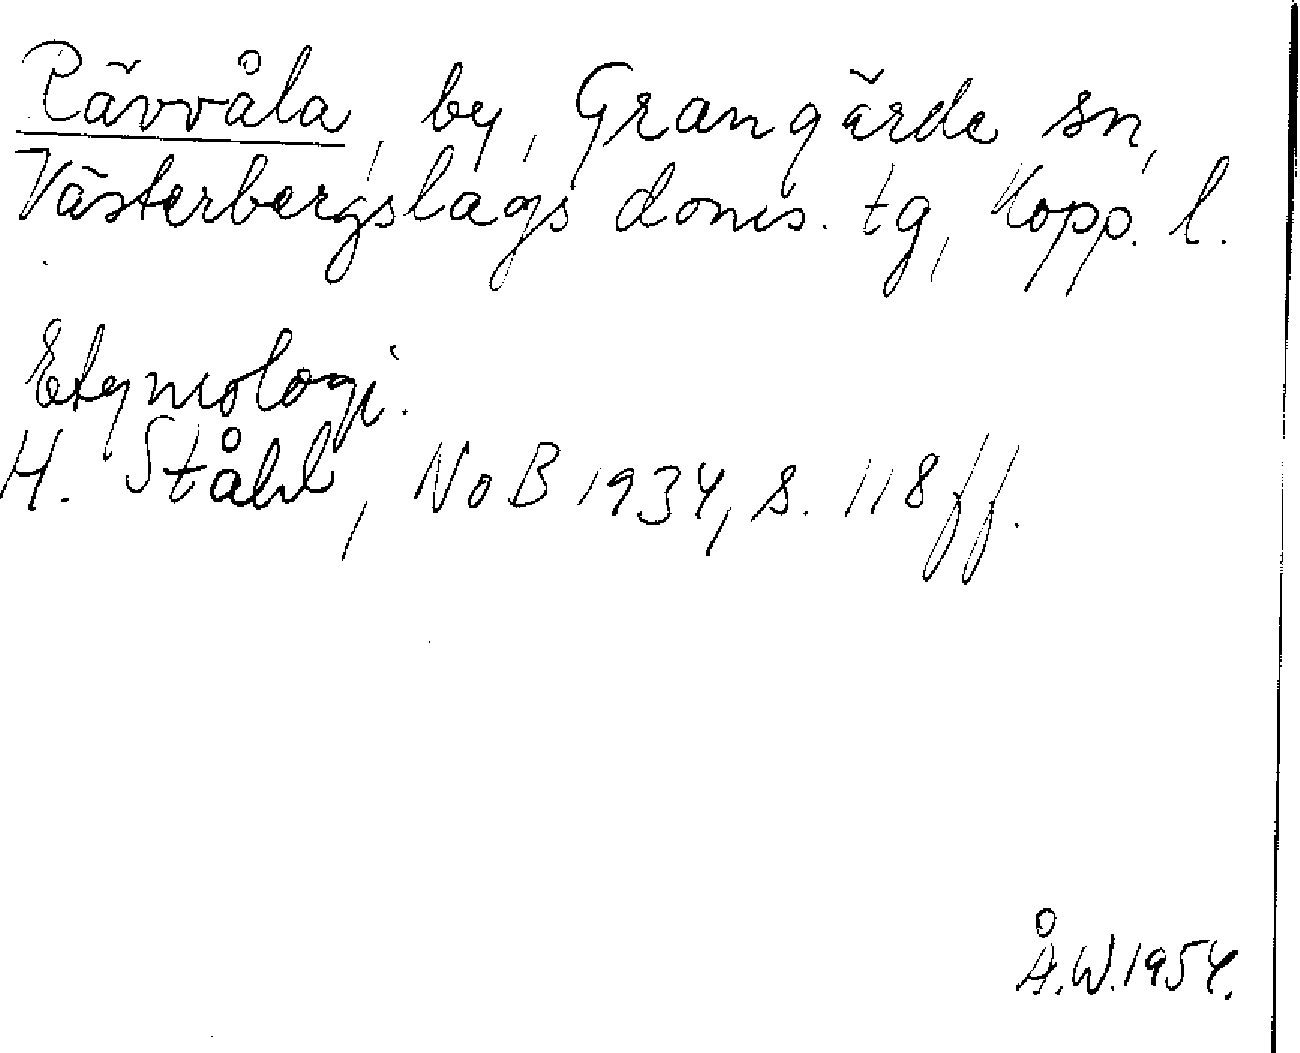 Rävvåla, by, Grangärde sn,
Västerbergslags doms. tg, Kopp. l.
Etymologi.
H. Ståhl, NoB 1934, s. 118 ff.
Å.W. 1954.